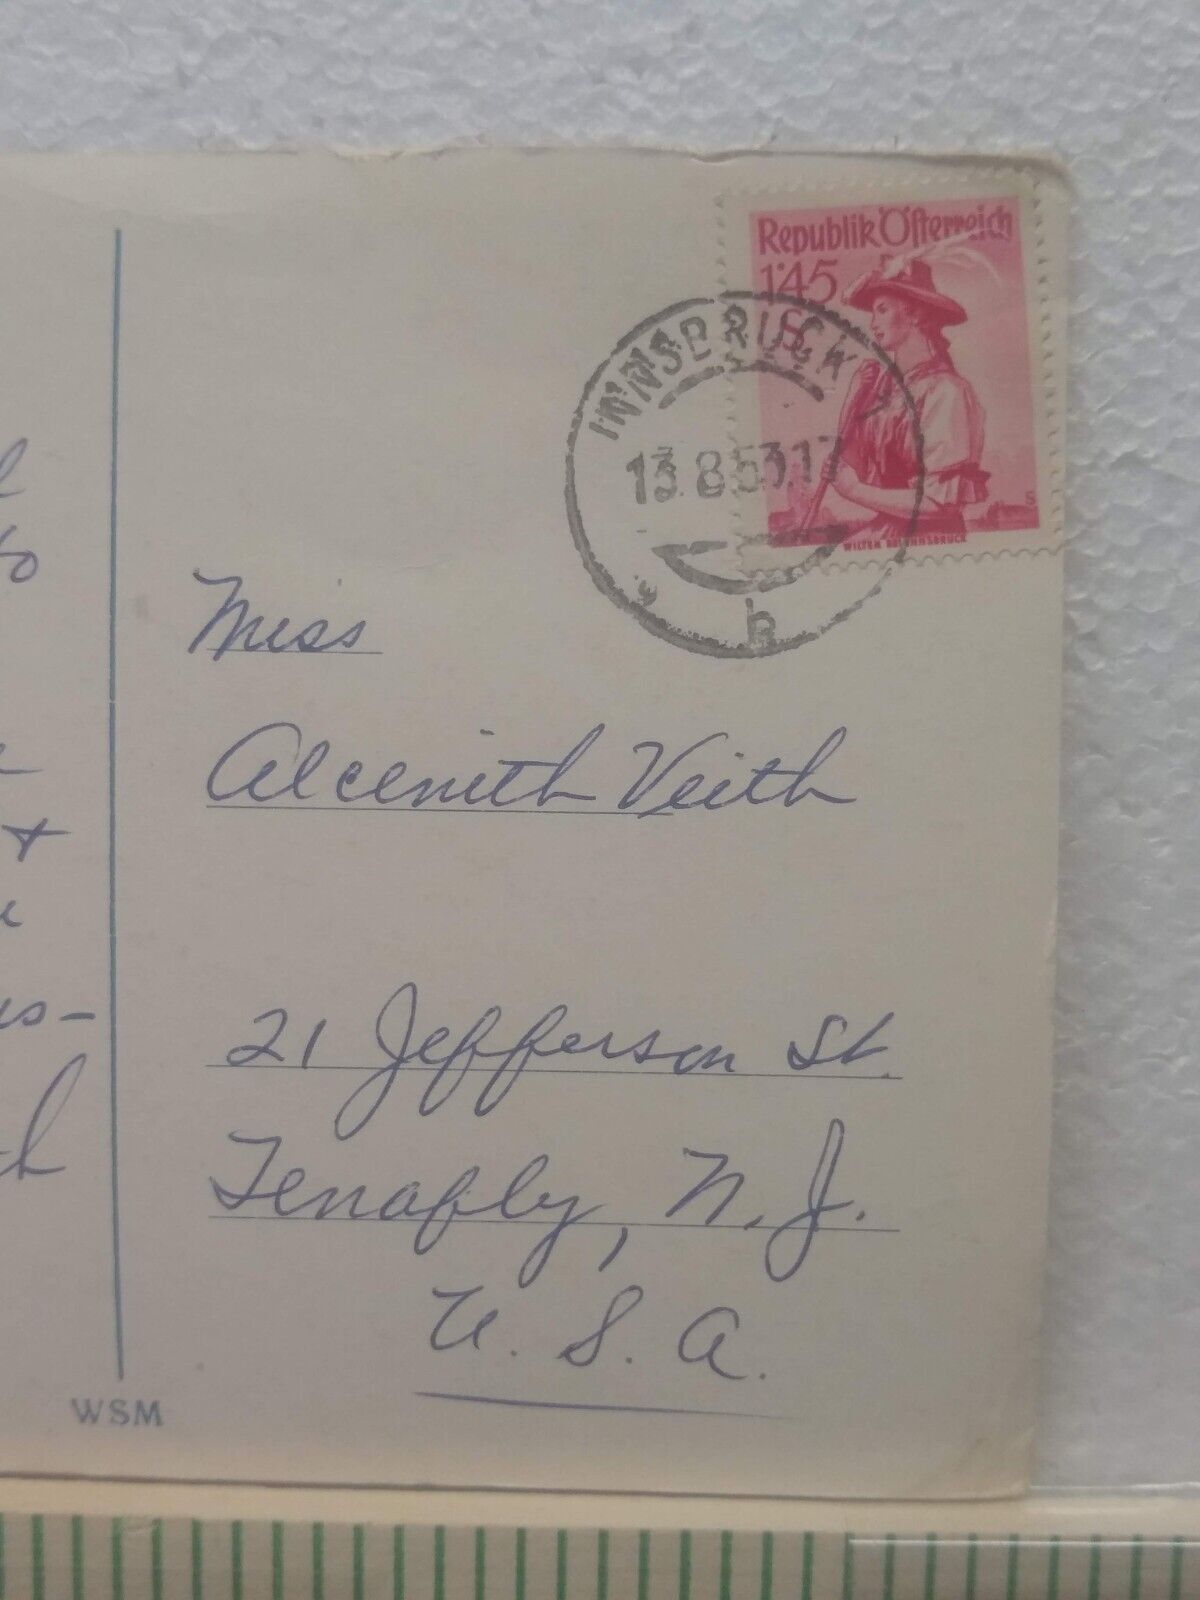 Republik Österreich
1·45
S
INNSBRUCK
13.8.53.17
b
WILTEN BEI INNSBRUCK
to
Miss
Alcenith Veith
+
21 Jefferson St.
Tenafly, N. J.
U. S. A.
WSM